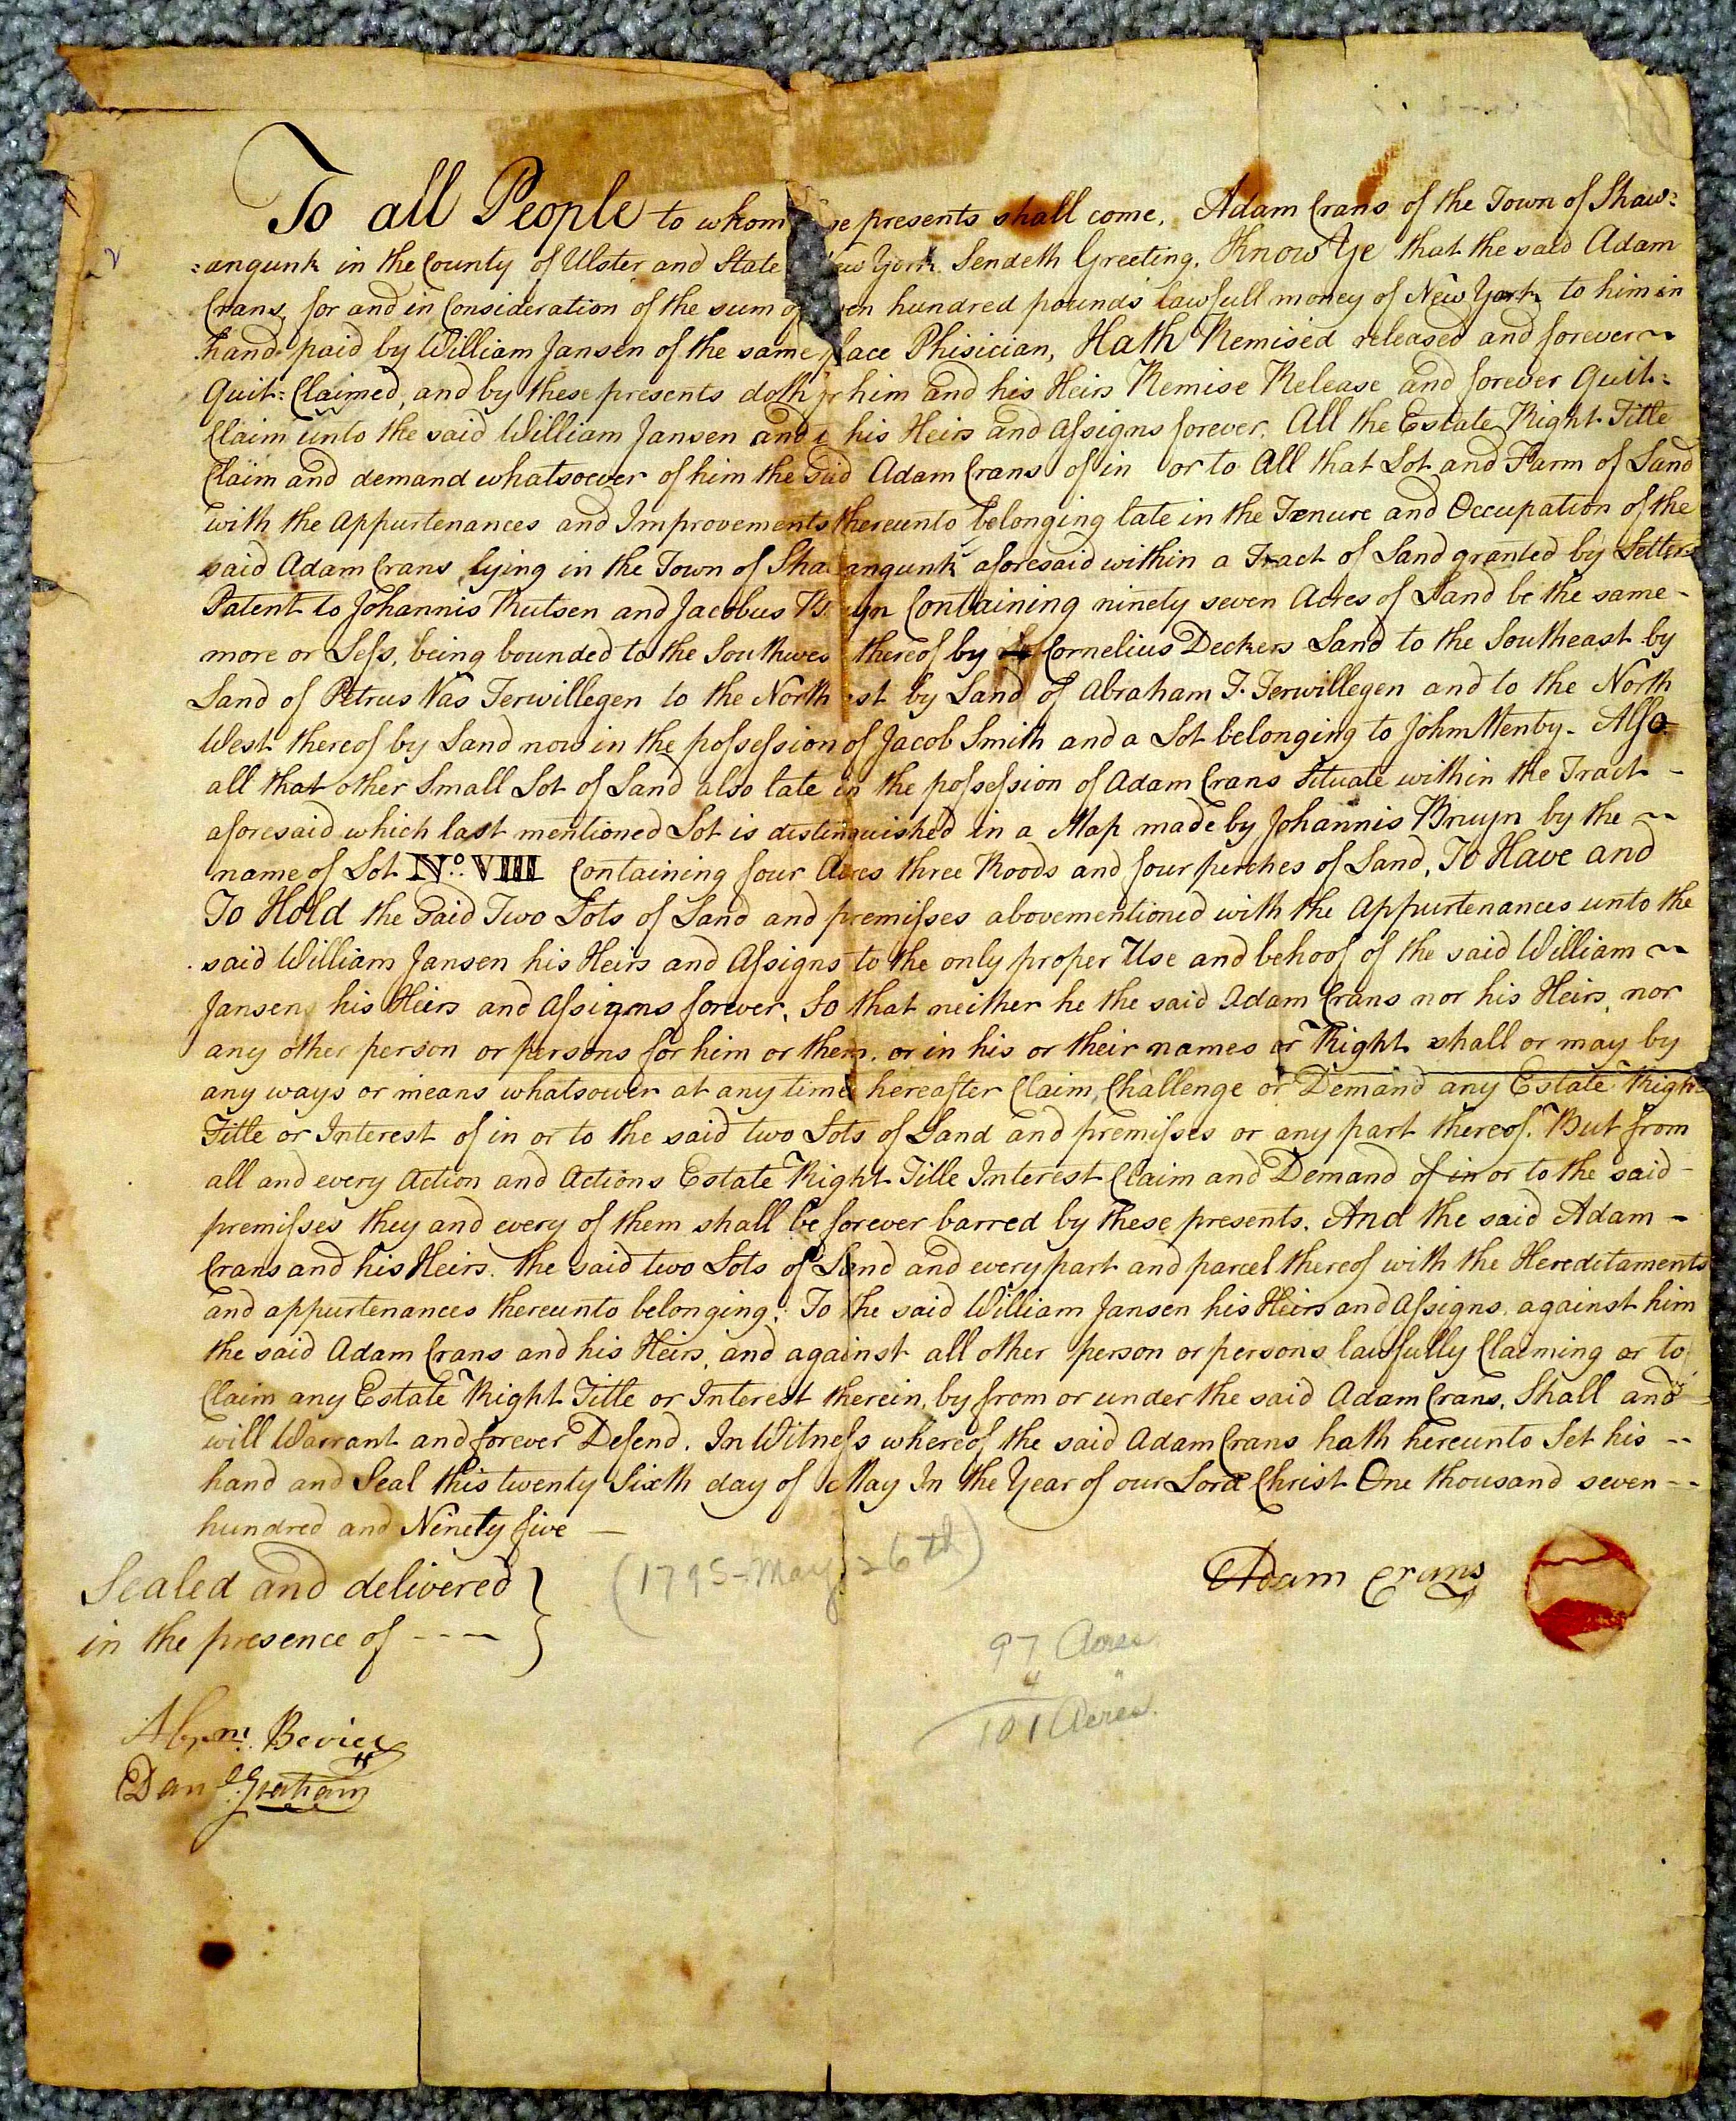 To all People to whom presents shall come. Adam Crans of the Town of Shaw=
=angunk in the County of Ulster and State New York Sendeth Greeting. Know Ye that the said Adam
Crans, for and in Consideration of the sum of hundred pounds lawfull money of New York to him in
hand paid by William Jansen of the same place Phisician, Hath Remised released and forever
Quit=Claimed, and by these presents doth for him and his Heirs Remise Release and forever Quit=
Claim unto the said William Jansen and his Heirs and Assigns forever. All the Estate Right Title
Claim and demand whatsoever of him the said Adam Crans of in or to All that Lot and Farm of Land
with the Appurtenances and Improvements thereunto belonging late in the Tenure and Occupation of the
said Adam Crans lying in the Town of Sha angunk aforesaid within a Tract of Land granted by Letters
Patent to Johannis Rutsen and Jacobus Bruyn Containing ninety seven Acres of Land be the same -
more or Less, being bounded to the Southwest thereof by Cornelius Deckers Land to the Southeast by
Land of Petrus Vas Terwillegen to the North est by Land of Abraham T. Terwillegen and to the North
West thereof by Land now in the possession of Jacob Smith and a Lot belonging to John Menby - Also
all that other Small Lot of Land also late in the possession of Adam Crans Situate within the Tract -
aforesaid which last mentioned Lot is distinguished in a Map made by Johannis Bruyn by the
name of Lot No. VIII Containing four Acres three Roods and four perches of Land, To Have and
To Hold the said Two Lots of Land and premisses abovementioned with the Appurtenances unto the
said William Jansen his Heirs and Assigns to the only proper Use and behoof of the said William
Jansen, his Heirs and Assigns forever, So that neither he the said Adam Crans nor his Heirs, nor
any other person or persons for him or them. or in his or their names or Right shall or may by
any ways or means whatsoever at any time hereafter Claim, Challenge or Demand any Estate Right
Title or Interest of in or to the said two Lots of Land and premisses or any part thereof. But from
all and every Action and Actions Estate Right Title Interest Claim and Demand of in or to the said -
premisses they and every of them shall be forever barred by these presents. And the said Adam -
Crans and his Heirs. the said two Lots of Land and every part and parcel thereof with the Hereditaments
and appurtenances thereunto belonging. To the said William Jansen his Heirs and Assigns. against him
the said Adam Crans and his Heirs, and against all other person or persons lawfully Claiming or to
Claim any Estate Right Title or Interest therein, by from or under the said Adam Crans, Shall and
will Warrant and forever Defend. In Witness whereof the said Adam Crans hath hereunto Set his --
hand and Seal this twenty Sixth day of May In the Year of our Lord Christ One thousand seven --
hundred and Ninety five —
Sealed and delivered
in the presence of ----
(1795-May 26th)
Adam Crans
97 Acres
4 "
101 Acres.
Abrm. Bevier
Danl. Graham